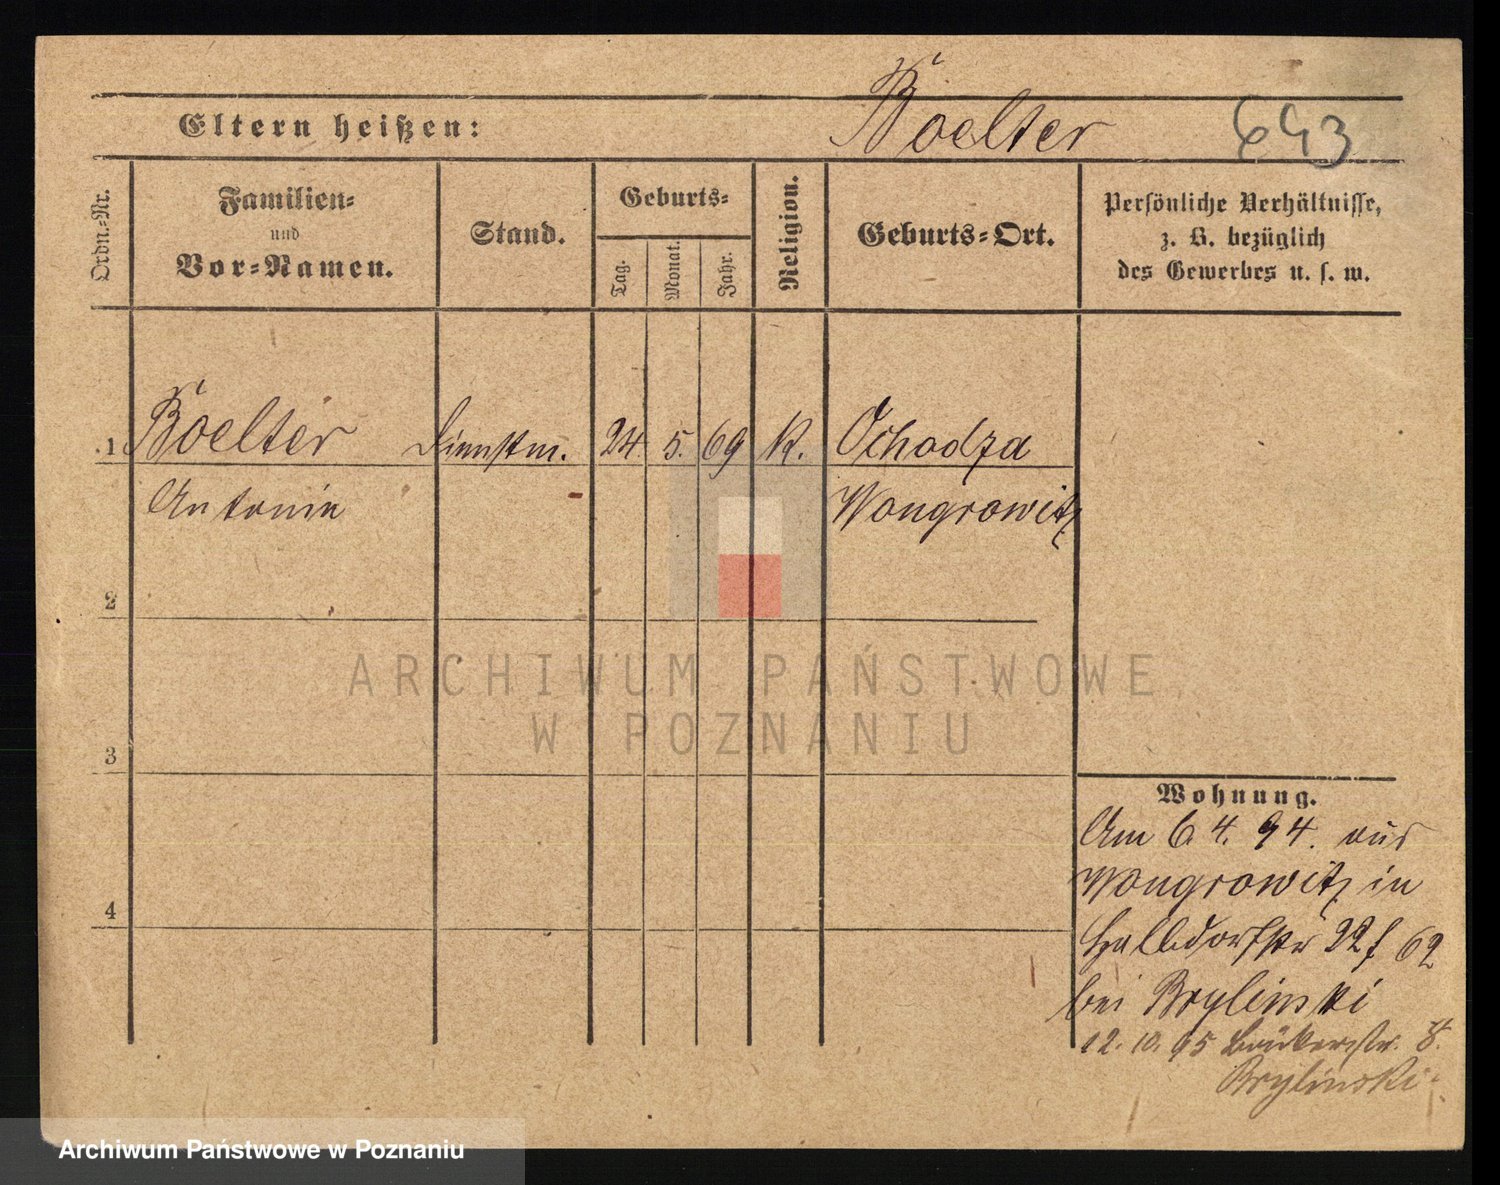 Boelter 643
Eltern heißen:
Ordn.-Nr.
Familien-
und
Vor-Namen.
Stand.
Geburts-
Tag.
Monat.
Jahr.
Religion.
Geburts-Ort.
Persönliche Verhältnisse,
z. B. bezüglich
des Gewerbes u. s. w.
1 Boelter Dienstm. 24. 5. 69 K. Ochodza
Antonie Wongrowitz
2
3
4
Wohnung.
Am 6. 4. 94. aus
Wongrowitz in
Halbdorfstr 22 62
bei Brylinski
12. 10. 95 Bäckerstr. 8.
Brylinski
ARCHIWUM PAŃSTWOWE
W POZNANIU
Archiwum Państwowe w Poznaniu